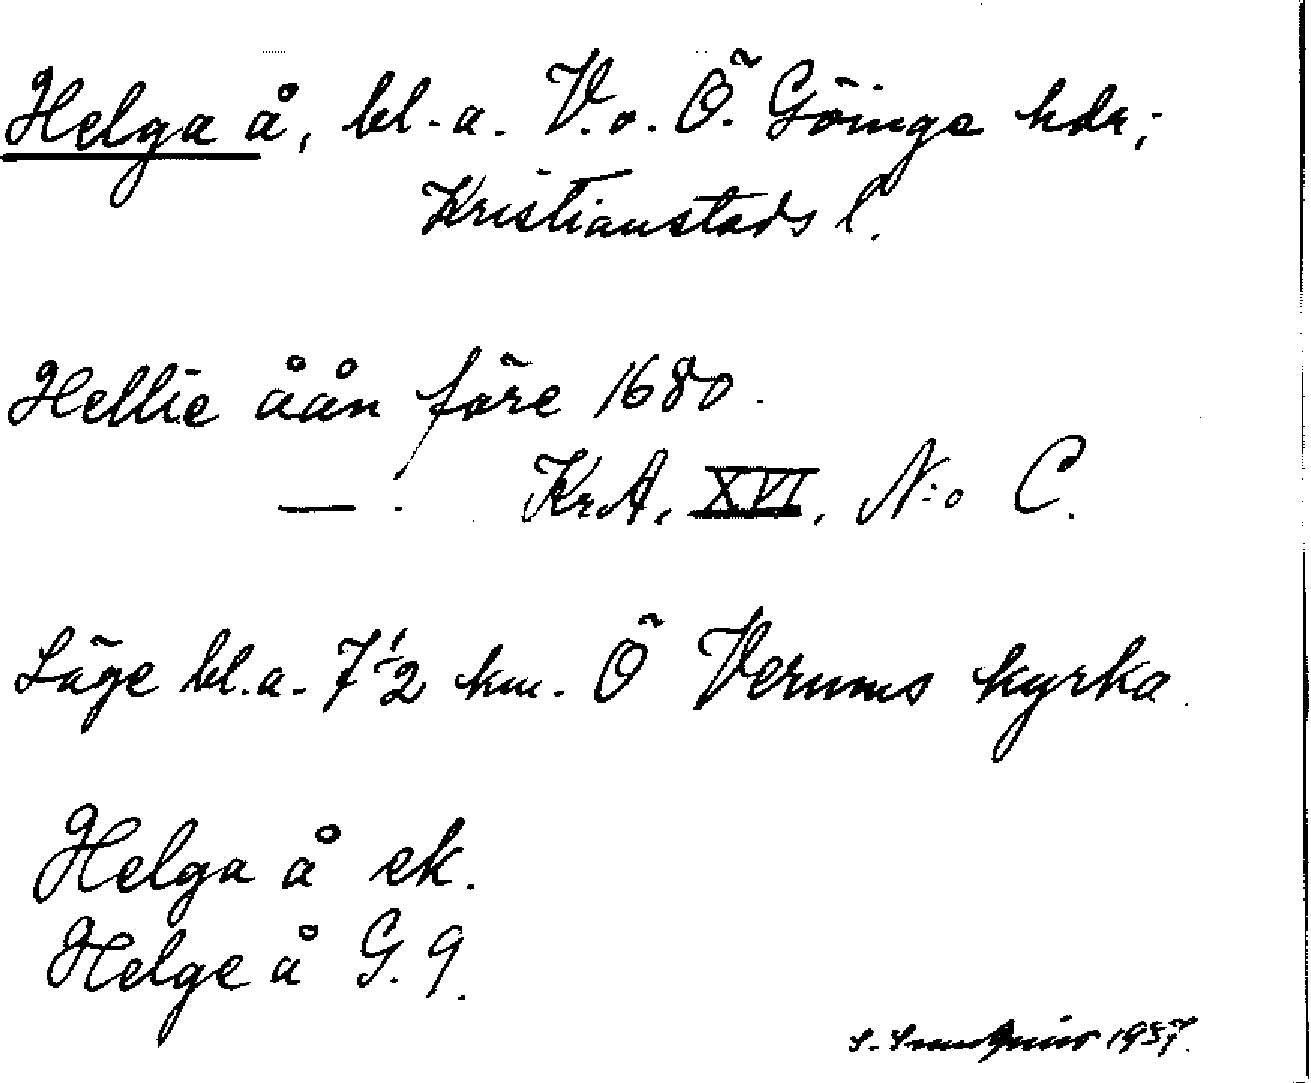 Helga å, bl.a. V. o. Ö. Göinge hdr,
Kristianstads l.
Hellie åån före 1680.
— . KrA, XVI, N:o C.
Läge bl.a. 7 1/2 km. Ö Verums kyrka.
Helga å ek.
Helge å G. 9.
1957.